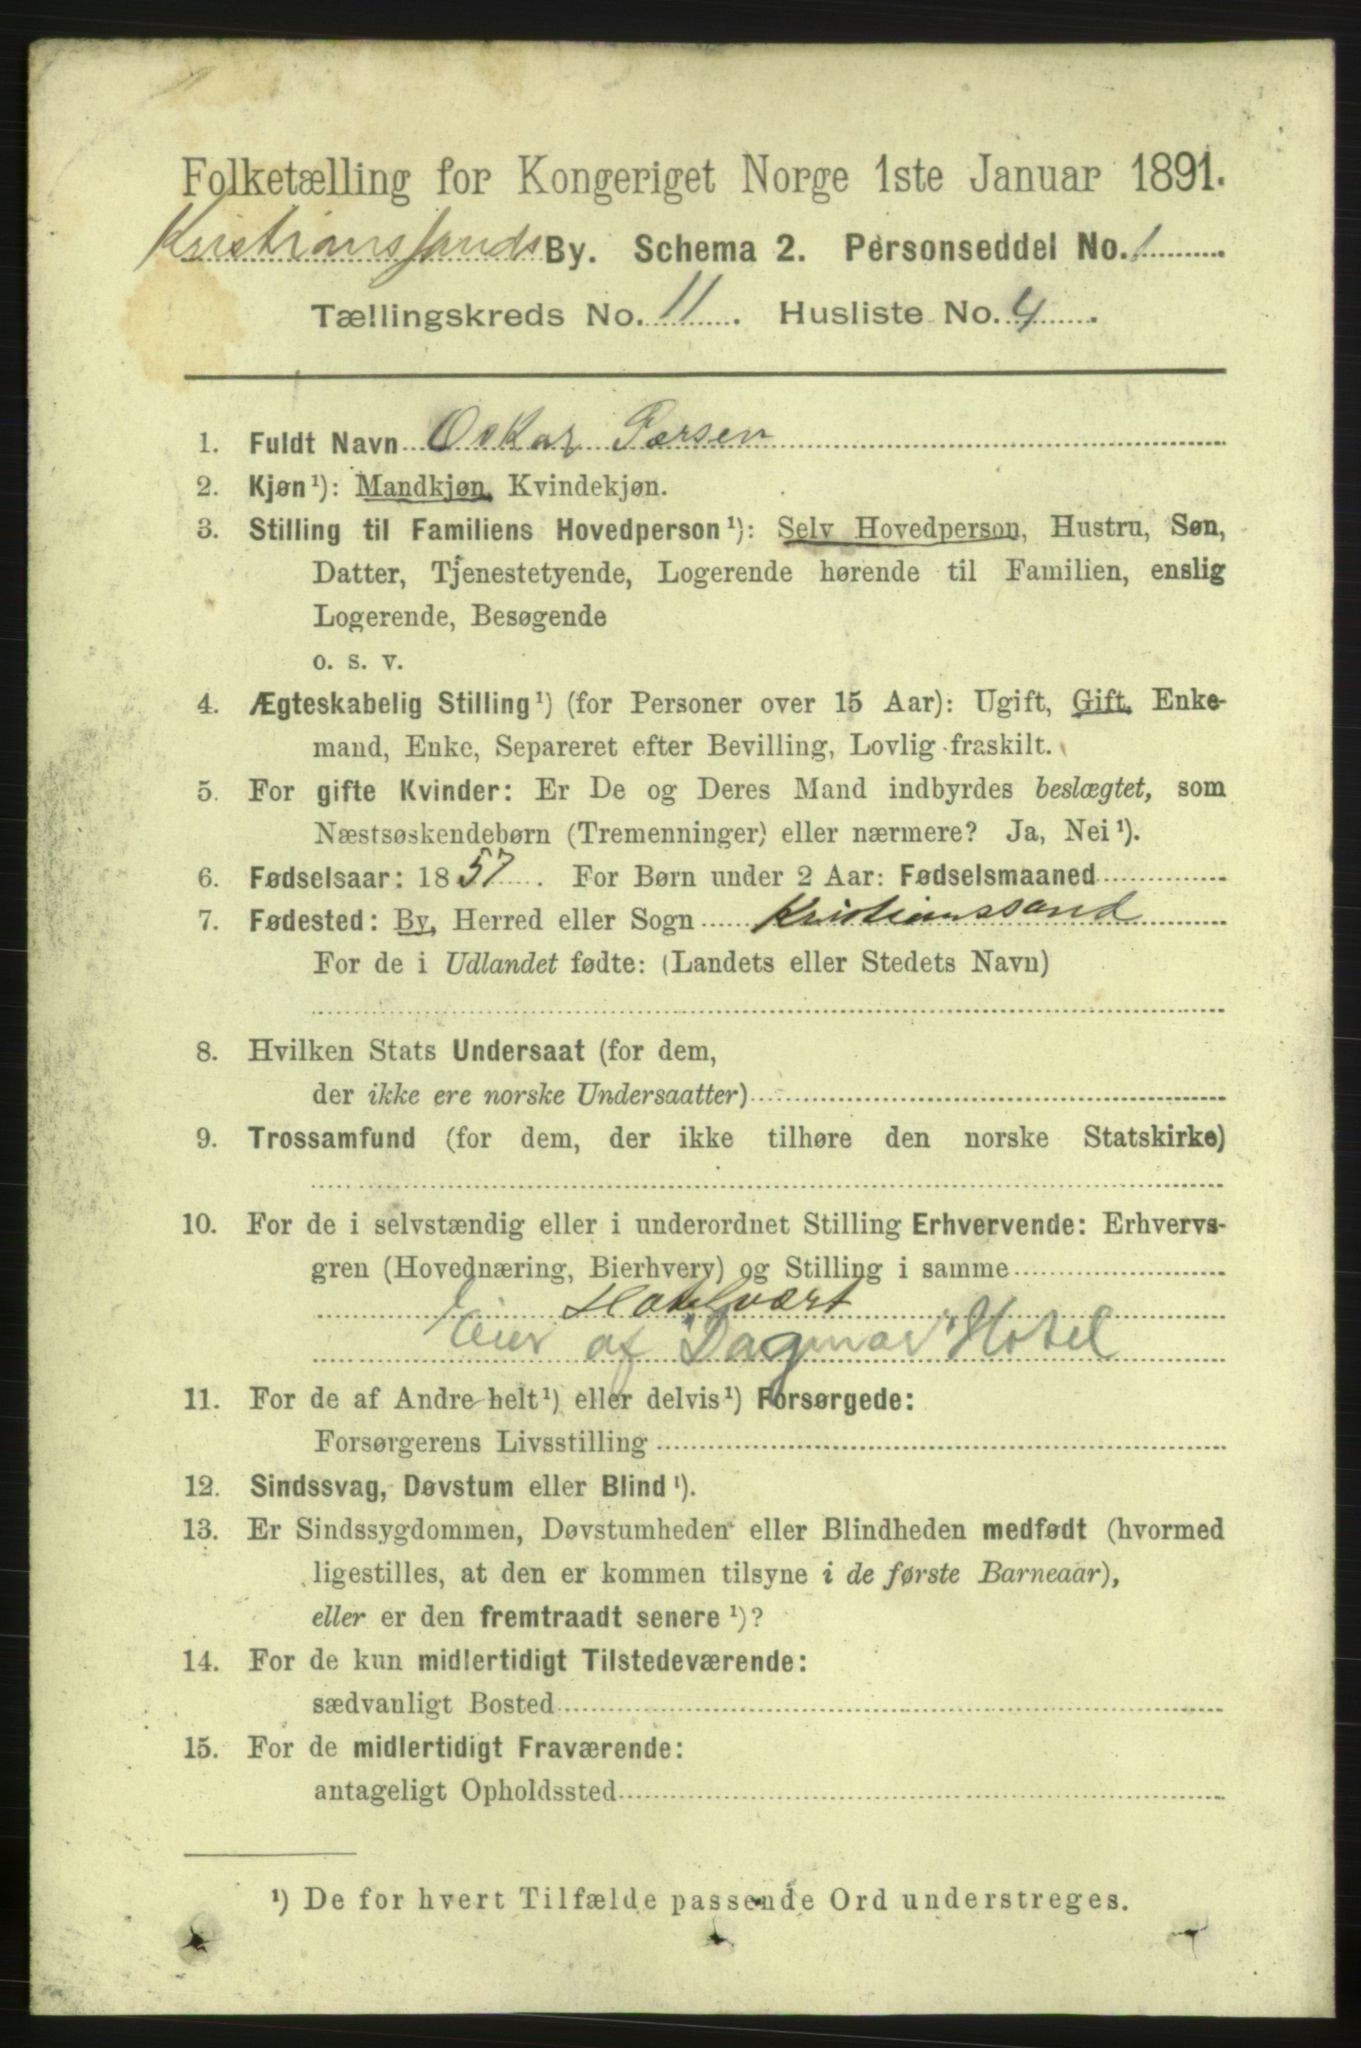 Folketælling for Kongeriget Norge 1ste Januar 1891.
Kristianssands By. Schema 2. Personseddel No. 1.
Tællingskreds No. 11. Husliste No. 4.
1. Fuldt Navn Oskar Færsen
2. Kjøn¹): Mandkjøn, Kvindekjøn.
3. Stilling til Familiens Hovedperson¹): Selv Hovedperson, Hustru, Søn,
Datter, Tjenestetyende, Logerende hørende til Familien, enslig
Logerende, Besøgende
o. s. v.
4. Ægteskabelig Stilling¹) (for Personer over 15 Aar): Ugift, Gift, Enke-
mand, Enke, Separeret efter Bevilling, Lovlig fraskilt.
5. For gifte Kvinder: Er De og Deres Mand indbyrdes beslægtet, som
Næstsøskendebørn (Tremenninger) eller nærmere? Ja, Nei¹).
6. Fødselsaar: 1857. For Børn under 2 Aar: Fødselsmaaned
7. Fødested: By, Herred eller Sogn Kristianssand
For de i Udlandet fødte: (Landets eller Stedets Navn)
8. Hvilken Stats Undersaat (for dem,
der ikke ere norske Undersaatter)
9. Trossamfund (for dem, der ikke tilhøre den norske Statskirke)
10. For de i selvstændig eller i underordnet Stilling Erhvervende: Erhvervs-
gren (Hovednæring, Bierhverv) og Stilling i samme
Hotelvært
Eier af "Dagmar" Hotel
11. For de af Andre helt¹) eller delvis¹) Forsørgede:
Forsørgerens Livsstilling
12. Sindssvag, Døvstum eller Blind¹).
13. Er Sindssygdommen, Døvstumheden eller Blindheden medfødt (hvormed
ligestilles, at den er kommen tilsyne i de første Barneaar),
eller er den fremtraadt senere¹)?
14. For de kun midlertidigt Tilstedeværende:
sædvanligt Bosted
15. For de midlertidigt Fraværende:
antageligt Opholdssted
¹) De for hvert Tilfælde passende Ord understreges.